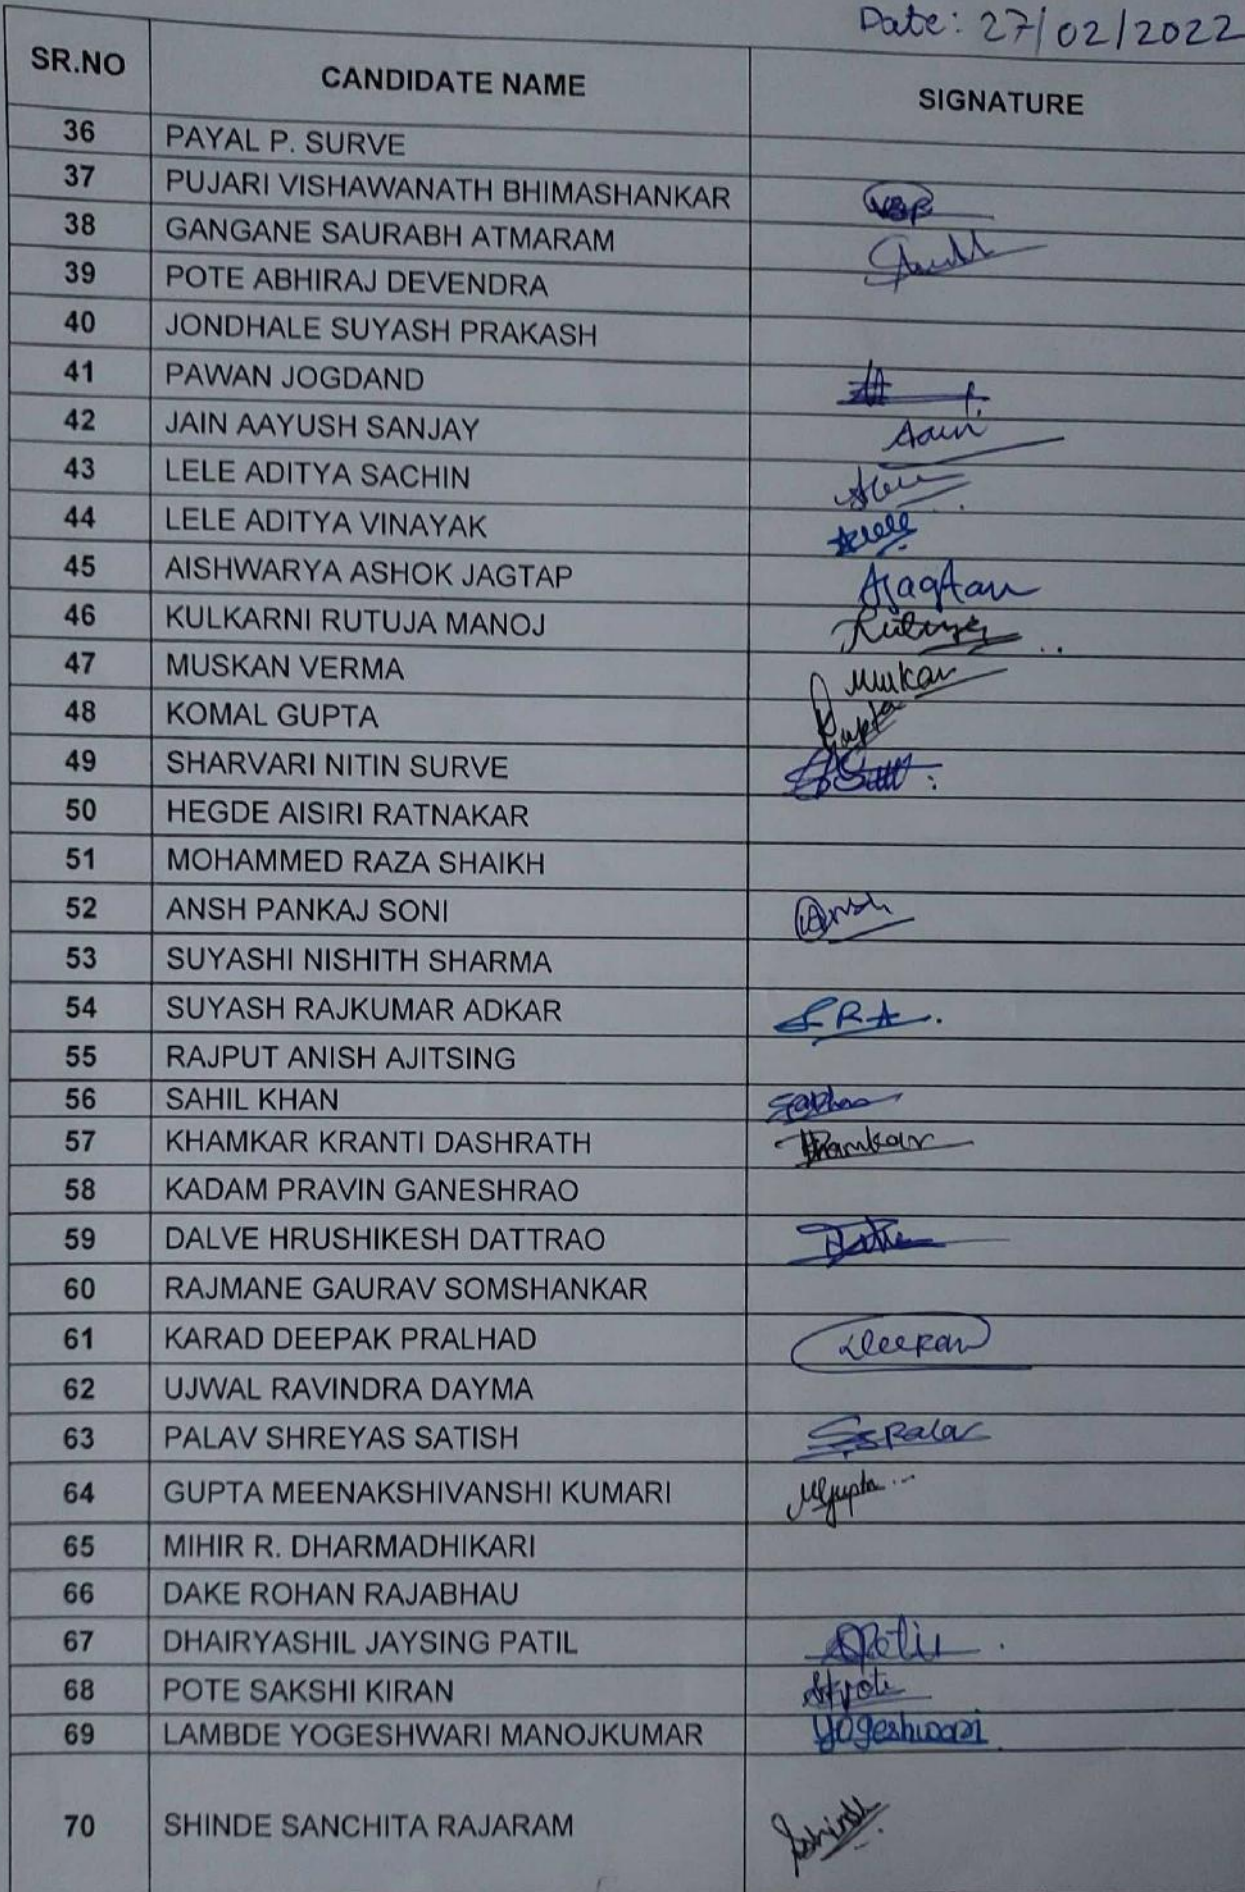 Date: 27/02/2022
SR.NO CANDIDATE NAME SIGNATURE
36 PAYAL P. SURVE
37 PUJARI VISHAWANATH BHIMASHANKAR
38 GANGANE SAURABH ATMARAM
39 POTE ABHIRAJ DEVENDRA
40 JONDHALE SUYASH PRAKASH
41 PAWAN JOGDAND
42 JAIN AAYUSH SANJAY
43 LELE ADITYA SACHIN
44 LELE ADITYA VINAYAK
45 AISHWARYA ASHOK JAGTAP
46 KULKARNI RUTUJA MANOJ
47 MUSKAN VERMA
48 KOMAL GUPTA
49 SHARVARI NITIN SURVE
50 HEGDE AISIRI RATNAKAR
51 MOHAMMED RAZA SHAIKH
52 ANSH PANKAJ SONI Ansh
53 SUYASHI NISHITH SHARMA
54 SUYASH RAJKUMAR ADKAR SRA.
55 RAJPUT ANISH AJITSING
56 SAHIL KHAN
57 KHAMKAR KRANTI DASHRATH
58 KADAM PRAVIN GANESHRAO
59 DALVE HRUSHIKESH DATTRAO
60 RAJMANE GAURAV SOMSHANKAR
61 KARAD DEEPAK PRALHAD
62 UJWAL RAVINDRA DAYMA
63 PALAV SHREYAS SATISH
64 GUPTA MEENAKSHIVANSHI KUMARI MGupta
65 MIHIR R. DHARMADHIKARI
66 DAKE ROHAN RAJABHAU
67 DHAIRYASHIL JAYSING PATIL
68 POTE SAKSHI KIRAN
69 LAMBDE YOGESHWARI MANOJKUMAR Yogeshwari
70 SHINDE SANCHITA RAJARAM